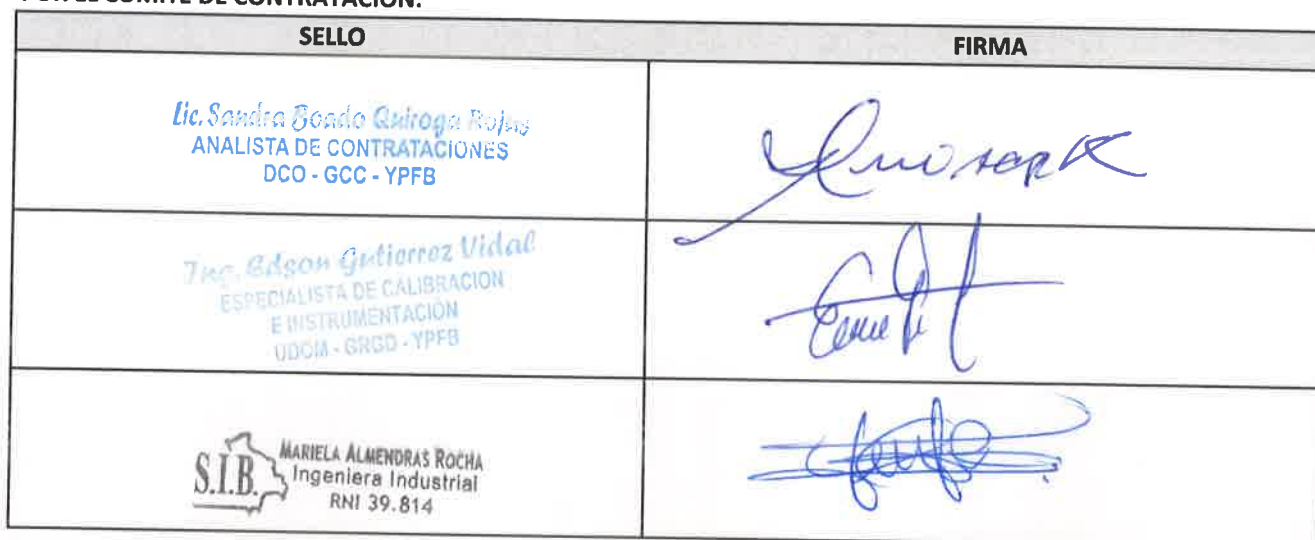 POR EL COMITÉ DE CONTRATACIÓN:
SELLO
FIRMA
Lic. Sandra Quiroga Rojas
ANALISTA DE CONTRATACIONES
DCO - GCC - YPFB
Ing. Edson Gutierrez Vidal
ESPECIALISTA DE CALIBRACION
E INSTRUMENTACIÓN
UDOM - GRGD - YPFB
S.I.B.
MARIELA ALMENDRAS ROCHA
Ingeniera Industrial
RNI 39.814